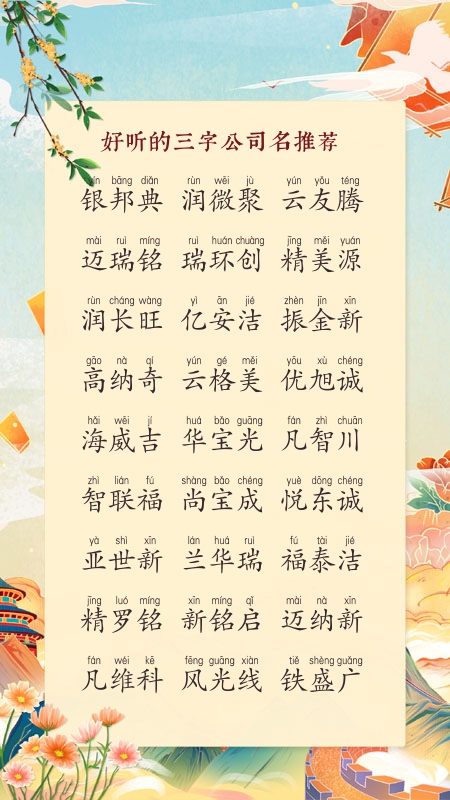 好听的三字公司名推荐
yín bāng diǎn rùn wēi jù yún yǒu téng
银邦典 润微聚 云友腾
mài ruì míng ruì huán chuàng jīng měi yuán
迈瑞铭 瑞环创 精美源
rùn cháng wàng yì ān jié zhèn jīn xīn
润长旺 亿安洁 振金新
gāo nà qí yún gé měi yōu xù chéng
高纳奇 云格美 优旭诚
hǎi wēi jí huá bǎo guāng fán zhì chuān
海威吉 华宝光 凡智川
zhì lián fú shàng bǎo chéng yuè dōng chéng
智联福 尚宝成 悦东诚
yà shì xīn lán huá ruì fú tài jié
亚世新 兰华瑞 福泰洁
jīng luó míng xīn míng qǐ mài nà xīn
精罗铭 新铭启 迈纳新
fán wéi kē fēng guāng xiàn tiě shèng guǎng
凡维科 风光线 铁盛广